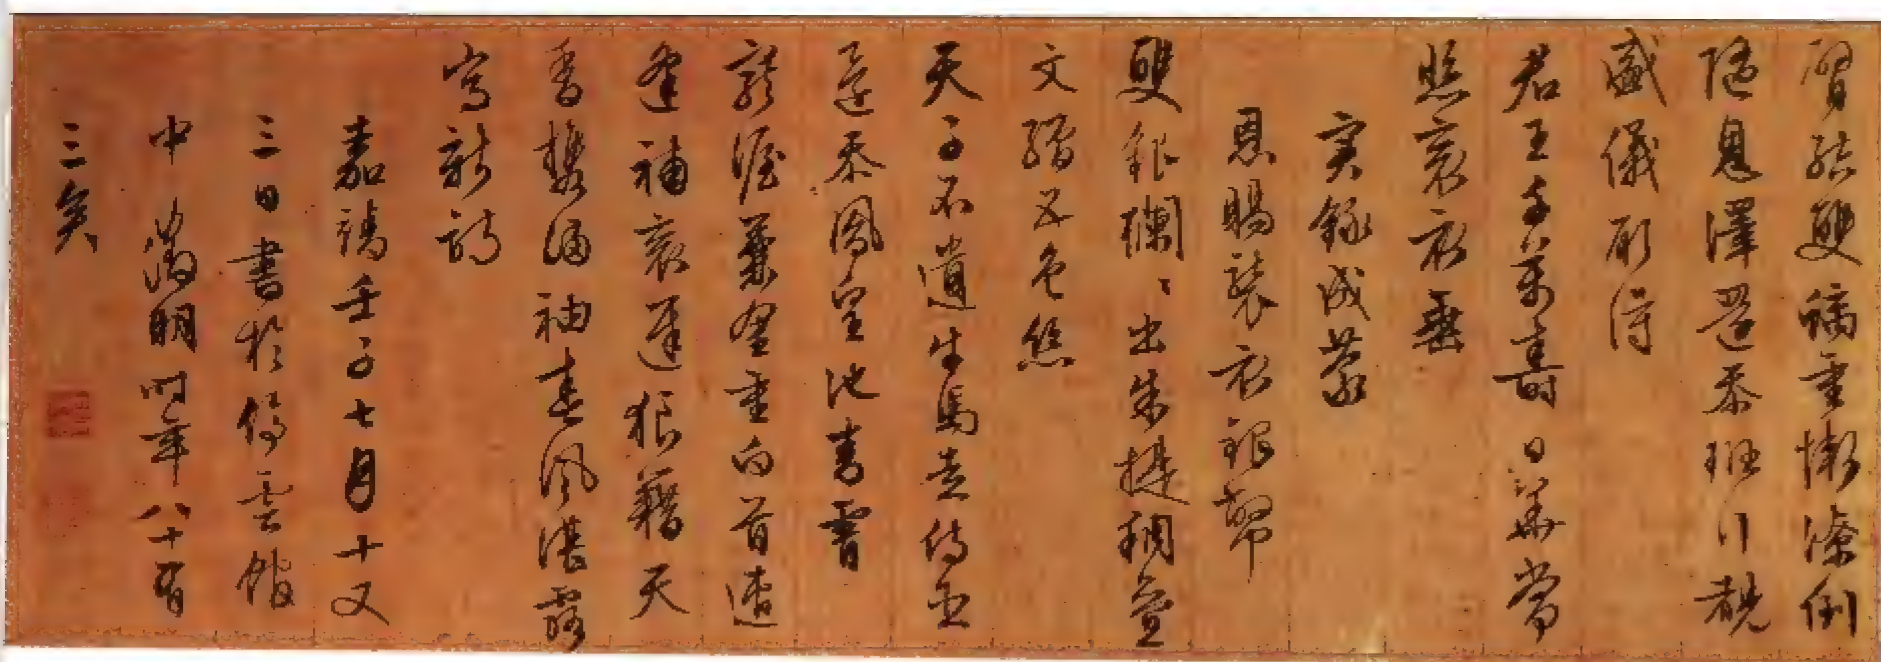 結雙螭重慚潦倒
隨恩澤還忝班行覩
盛儀願得
君王千萬壽日華常
照袞衣垂
實錄成蒙
恩賜襲衣銀幣
雙銀爛〻出朱提稠疊
文繒五色絲
天子不遺牛馬走侍臣
還忝鳳皇池青霄
龍渥囊金重白首遭
逢補袞遲狼籍天
香攜滿袖春風湛露
寫新詩
嘉靖壬子七月十又
三日書於停雲館
中徵明時年八十有
三矣